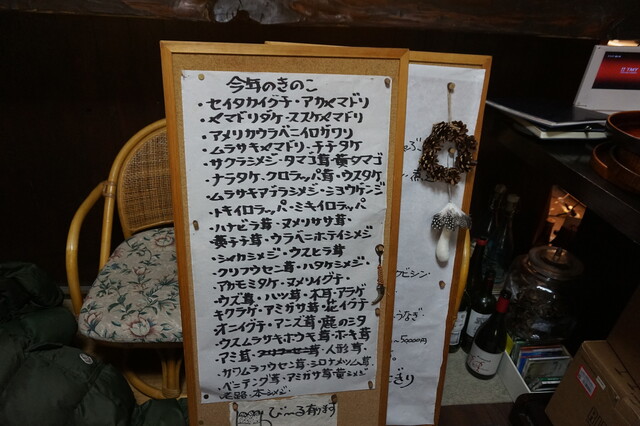 今年のきのこ
・セイタカイグチ・アカヤマドリ
・ヤマドリタケ・ススケヤマドリ
・アメリカウラベニイロガワリ
・ムラサキヤマドリ・チチタケ
・サクラシメジ・タマゴ茸・黄タマゴ
・ナラタケ・クロラッパ茸・ウスタケ
・ムラサキアブラシメジ・ショウゲンジ
・トキイロラッパ・ミキイロラッパ
・ハナビラ茸・ヌメリササ茸・
・ウラベニホテイシメジ
・シャカシメジ・ウスヒラ茸
・クリフウセン茸・ハタケシメジ・
・アカモミタケ・ヌメリイグチ・
・ウズ茸・ハツ茸・木耳・アラゲ
キクラゲ・アミガサ茸・花イグチ
オニイグチ・アンズ茸・鹿のミタ
・ウスムラサキホウキ茸・ホーキ茸
・アミ茸・人形茸・
・カワムラフウセン茸・シロナメツム茸
・ベニテング茸・アミガサ茸・黄シメジ
・本シメジ
びーる有ります